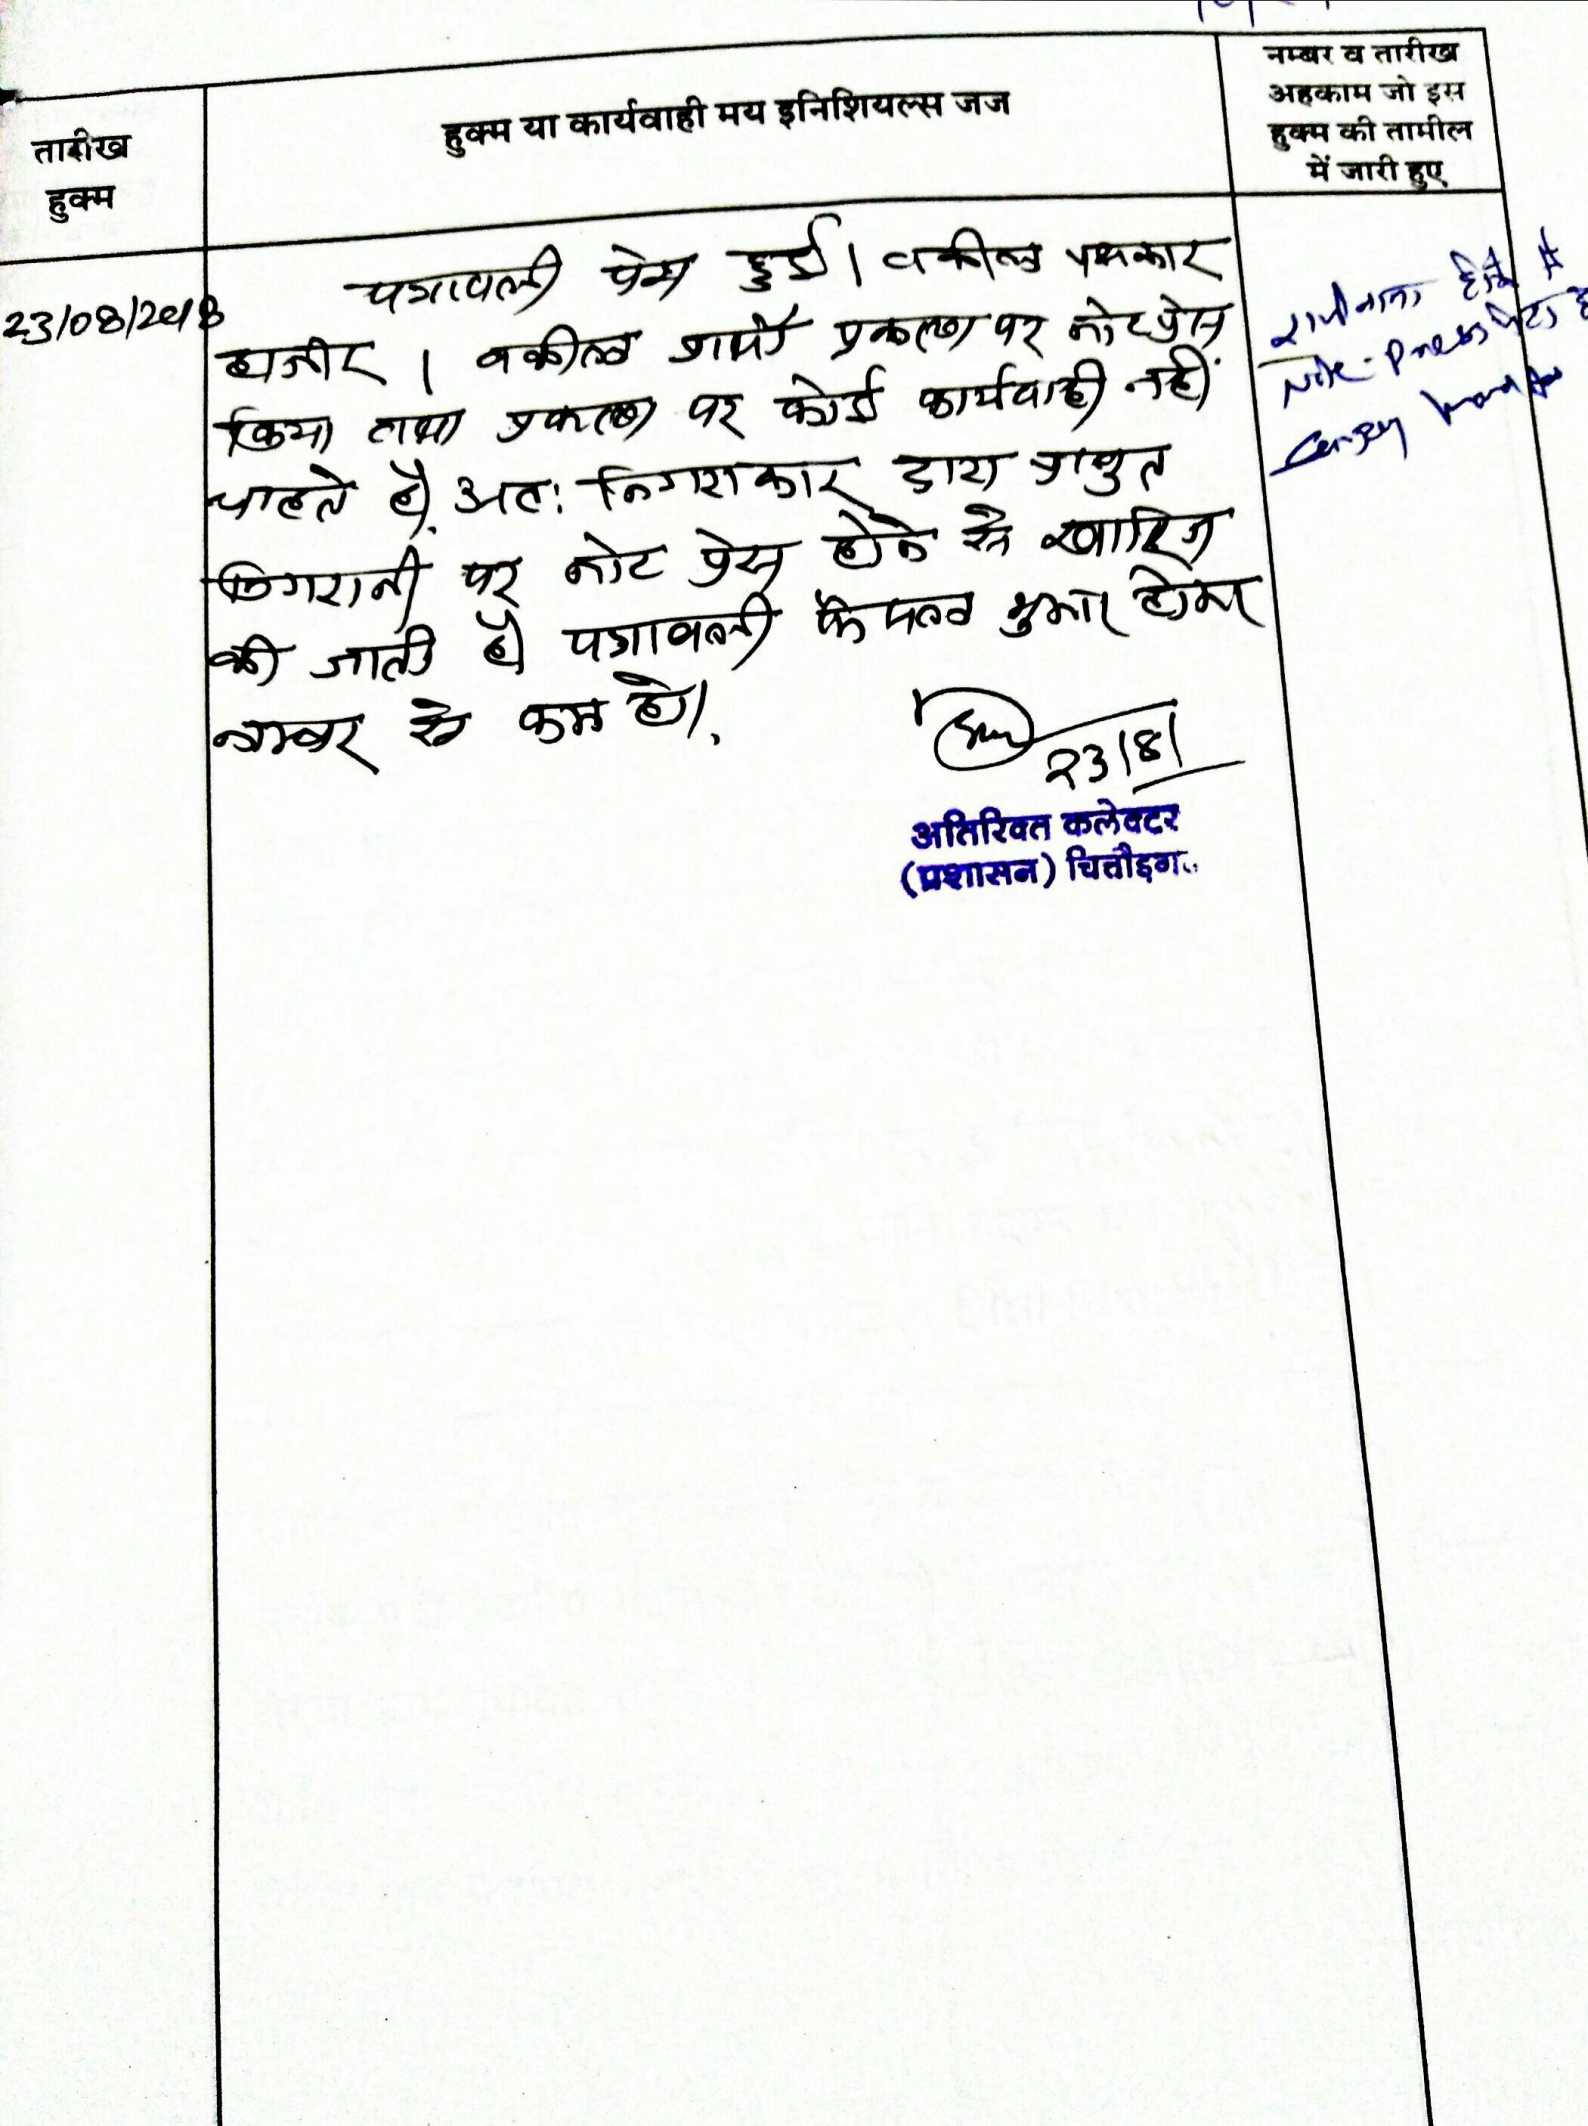 तारीख
हुक्म
हुक्म या कार्यवाही मय इनिशियल्स जज
नम्बर व तारीख
अहकाम जो इस
हुक्म की तामील
में जारी हुए
23/08/2018
पत्रावली पेश हुई। वकील पक्षकार
हाजीर। वकील प्रार्थी प्रकरण पर नोट प्रेस
किया तथा प्रकरण पर कोई कार्यवाही नहीं
चाहते है। अतः निगराकार द्वारा प्रस्तुत
निगरानी पर नोट प्रेस होने से खारिज
की जाती है पत्रावली फैसल शुमार होकर
नम्बर से कम हो।
23/8/
अतिरिक्त कलेक्टर
(प्रशासन) चित्तौड़ग
राजीनामा होने से